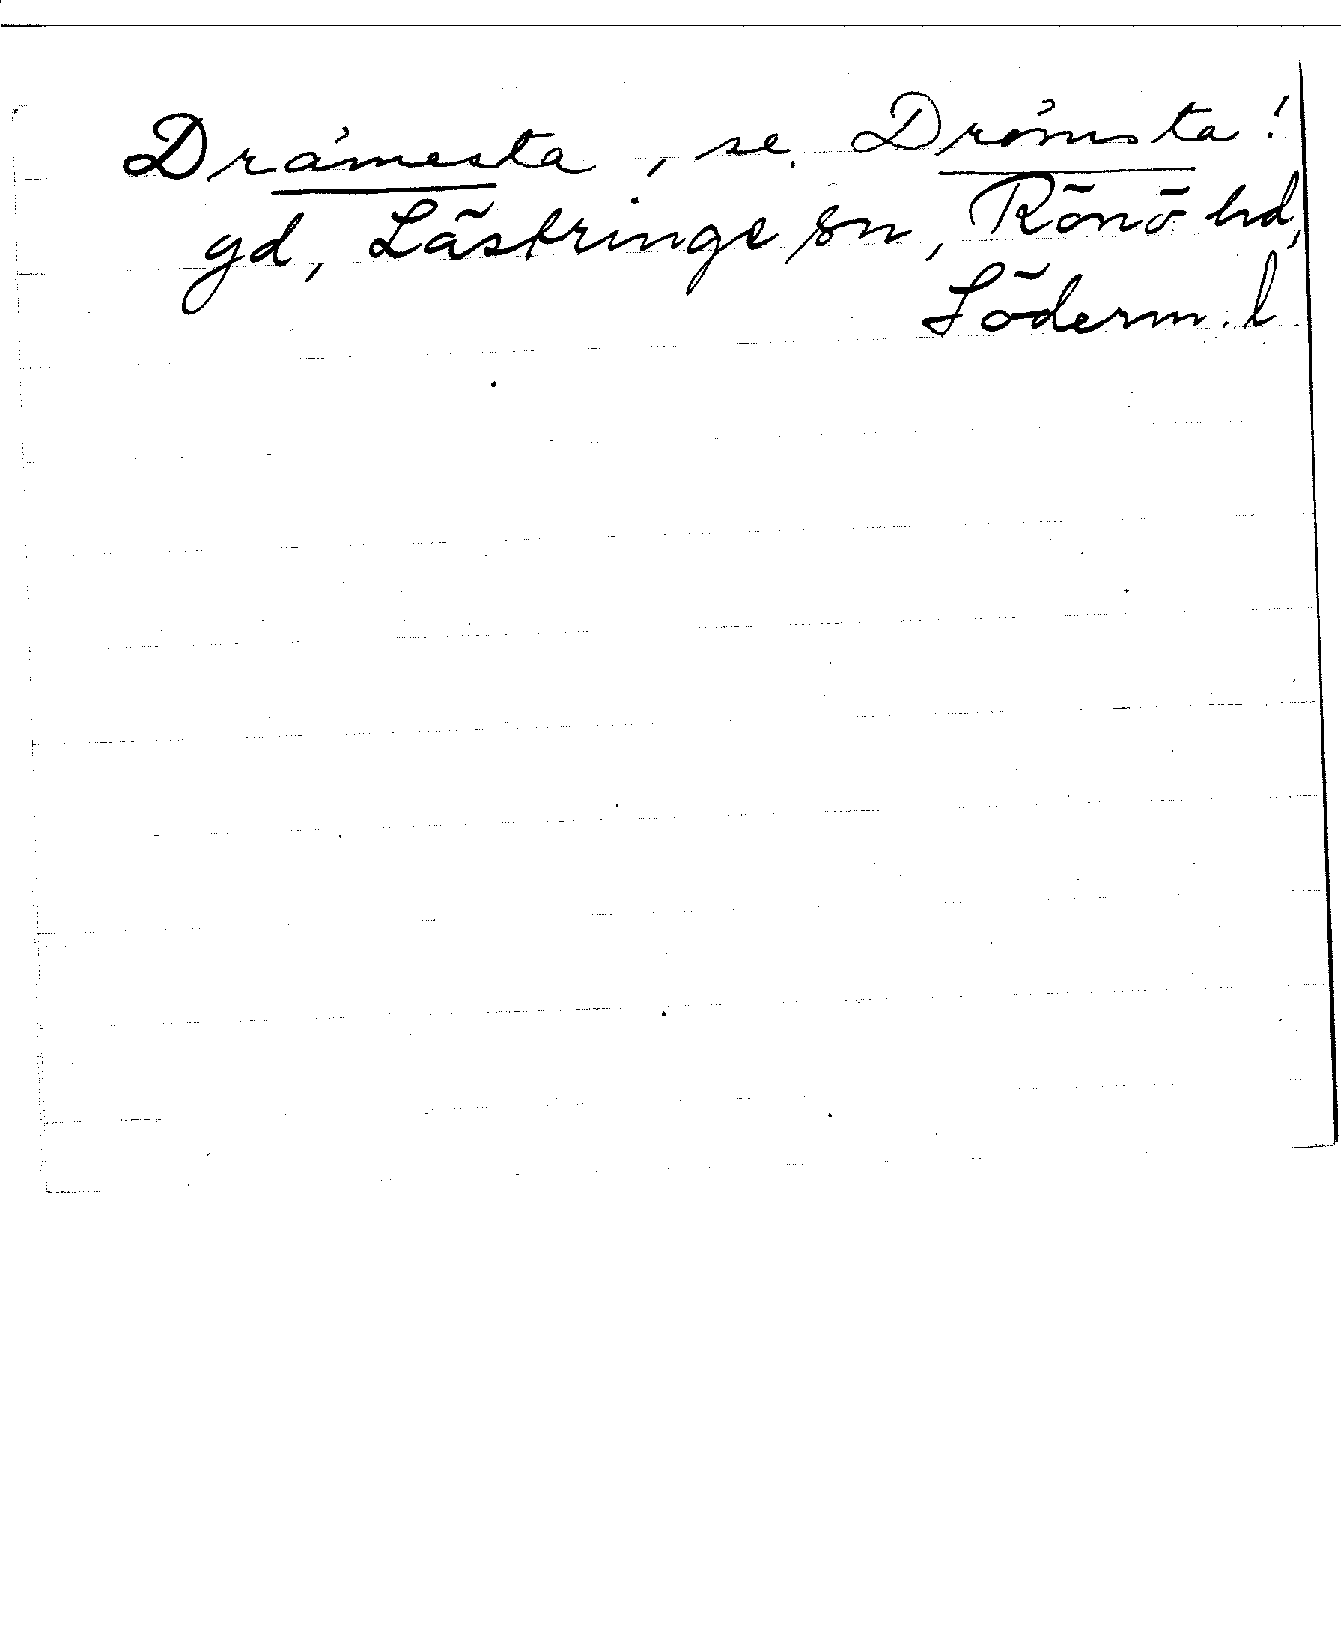 Dråmesta, se Drömsta!
gd, Lästringe sn, Rönö hd,
Söderm. l